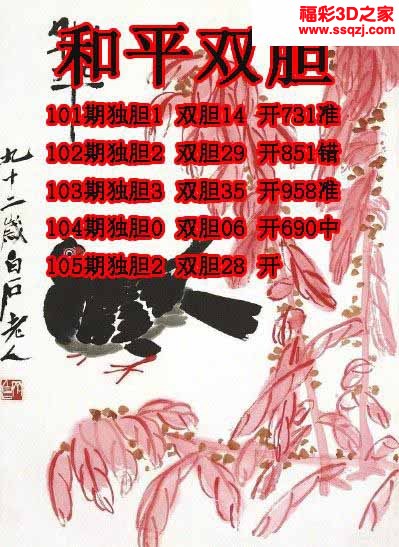 福彩3D之家
www.ssqzj.com
和平双胆
101期独胆1 双胆14 开731准
102期独胆2 双胆29 开851错
103期独胆3 双胆35 开958准
104期独胆0 双胆06 开690中
105期独胆2 双胆28 开
九十二岁白石老人